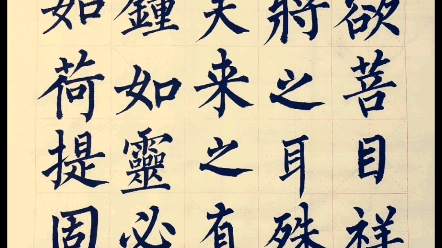 欲菩目祥
將之耳殊
天来之有
鐘如靈必
如荷提固